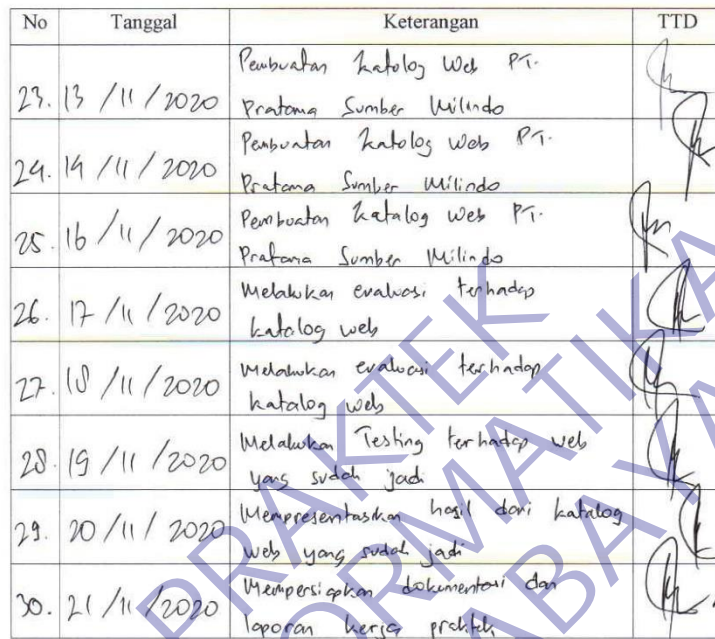 No Tanggal Keterangan TTD
23. 13 / 11 / 2020 Pembuatan Katalog Web PT.
Pratama Sumber Milindo
24. 14 / 11 / 2020 Pembuatan Katalog Web PT.
Pratama Sumber Milindo
25. 16 / 11 / 2020 Pembuatan Katalog Web PT.
Pratama Sumber Milindo
26. 17 / 11 / 2020 Melakukan evaluasi terhadap
katalog web
27. 18 / 11 / 2020 Melakukan evaluasi terhadap
katalog web
28. 19 / 11 / 2020 Melakukan Testing terhadap web
yang sudah jadi
29. 20 / 11 / 2020 Mempresentasikan hasil dari katalog
web yang sudah jadi
30. 21 / 11 / 2020 Mempersiapkan dokumentasi dan
laporan kerja praktek
PRAKTEK